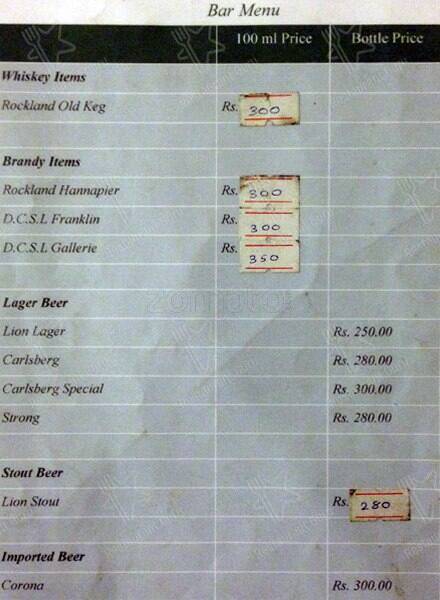 Bar Menu
100 ml Price Bottle Price
Whiskey Items
Rockland Old Keg Rs. 300
Brandy Items
Rockland Hannapier Rs. 300
D.C.S.L Franklin Rs. 300
D.C.S.L Gallerie Rs. 350
zomato
Lager Beer
Lion Lager Rs. 250.00
Carlsberg Rs. 280.00
Carlsberg Special Rs. 300.00
Strong Rs. 280.00
Stout Beer
Lion Stout Rs. 280
Imported Beer
Corona Rs. 300.00